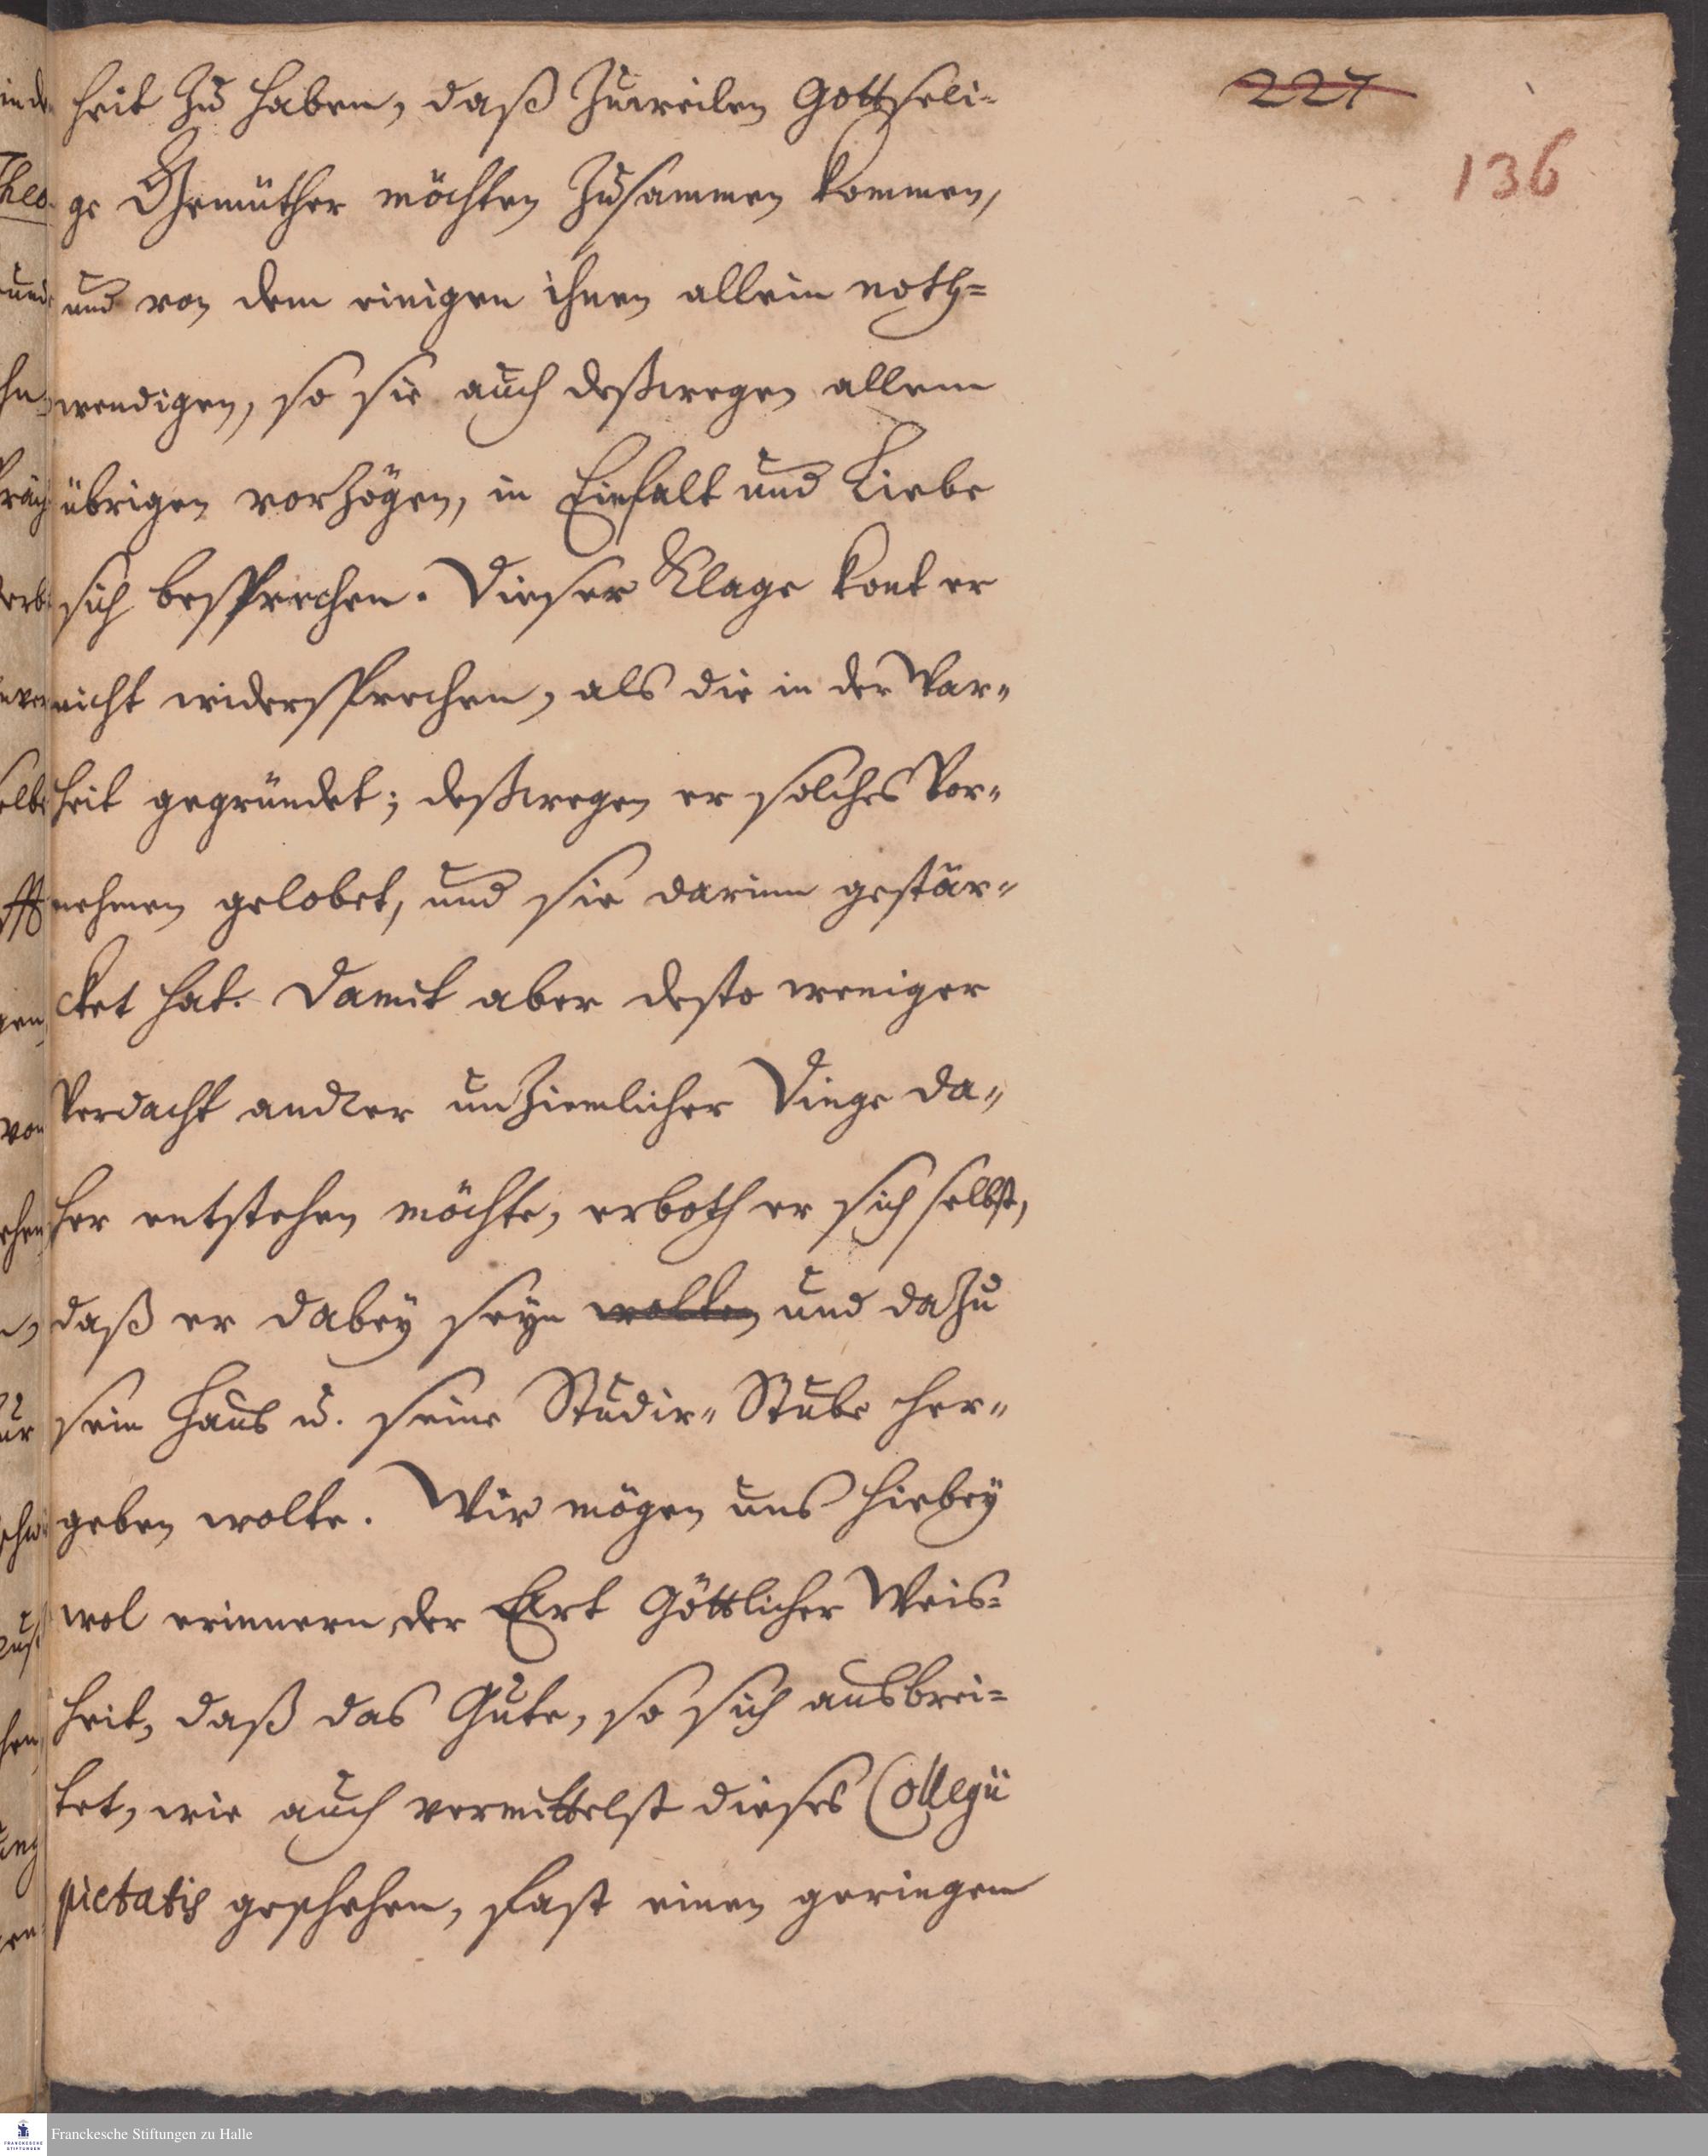 227
136
heit zu haben, daß zuweilen Gottseli-
ge Gemüther möchten zusammen kommen,
und von dem einigen ihnen allein noth=
wendigen, so sie auch deßwegen allem
übrigen vorzögen, in Einfalt und Liebe
sich besprechen. Dieser Klage kont er
nicht widersprechen, als die in der War-
heit gegründet; deßwegen er solches Vor-
nehmen gelobet, und sie darinn gestär-
cket hat. Damit aber desto weniger
Verdacht andrer unziemlicher Dinge da-
her entstehen möchte, erboth er sich selbst,
daß er dabey seyn wolten und dazu
sein Haus u. seine Studir-Stube her-
geben wolte. Wir mögen uns hiebey
wol erinnern der Art Göttlicher Weis=
heit, daß das Gute, so sich ausbrei=
tet, wie auch vermittelst dieses Collegii
pietatis geschehen, fast einen geringen
Franckesche Stiftungen zu Halle